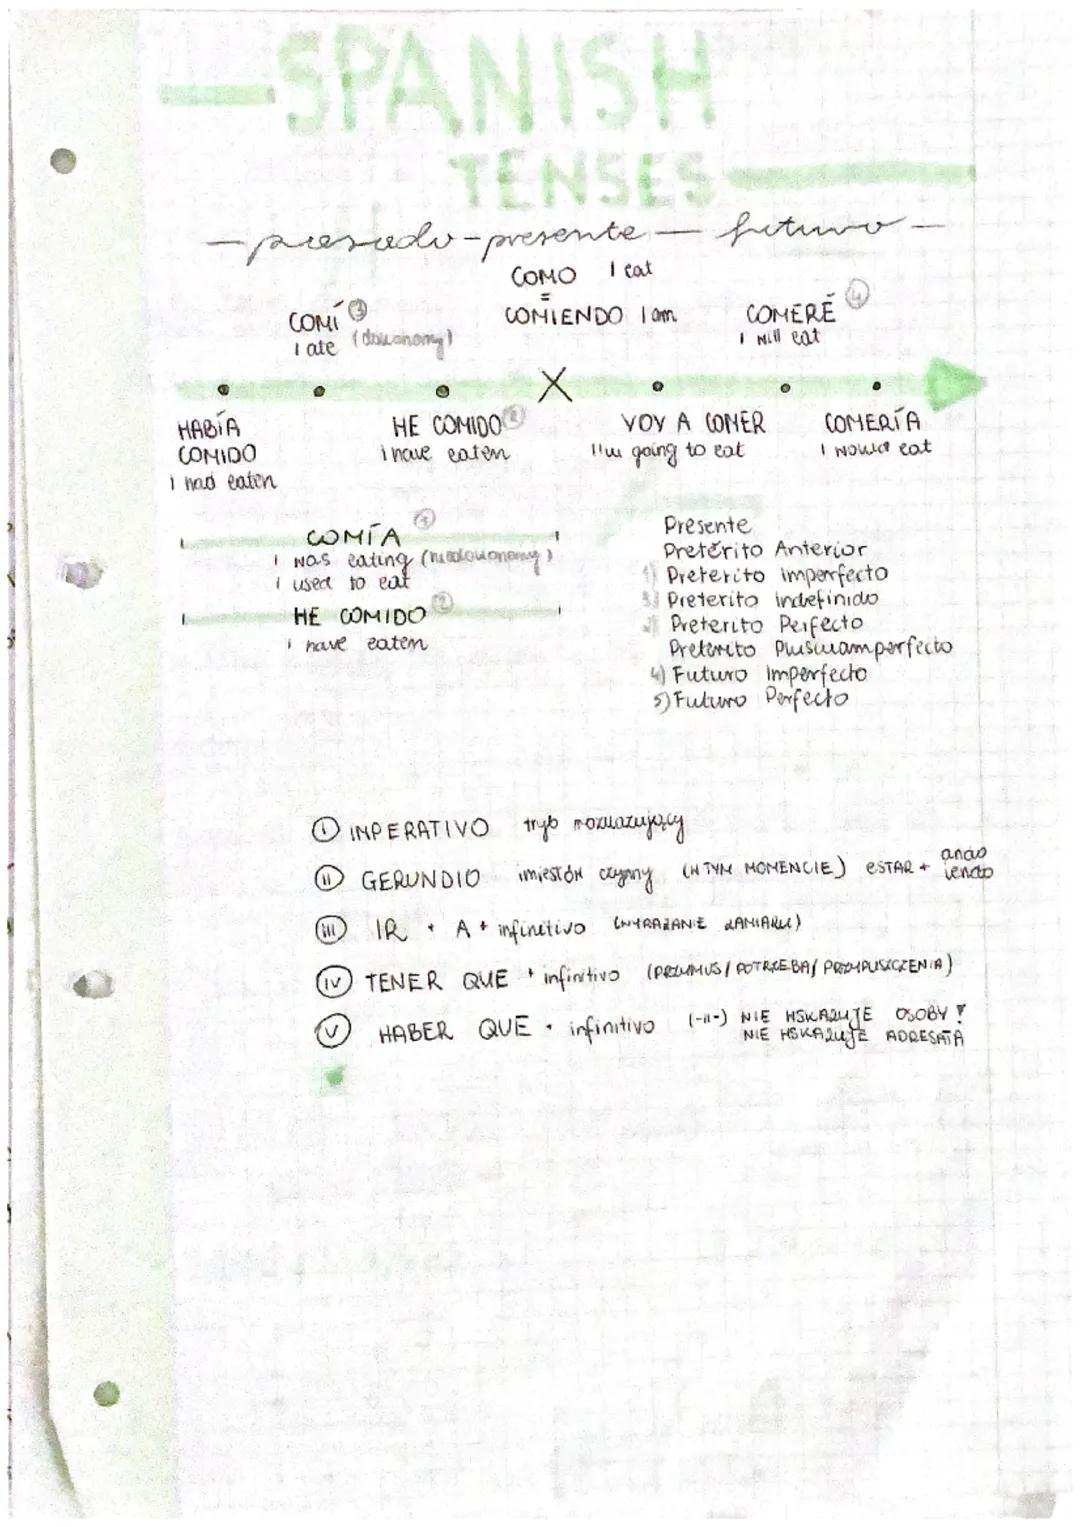 SPANISH
TENSES
- pasado - presente - futuro -
COMO I eat
=
COMÍ ③
COMIENDO I am
COMERÉ ④
I ate (dokonany)
I will eat
X
HABÍA
COMIDO
I had eaten
HE COMIDO ②
I have eaten
VOY A COMER
I'm going to eat
COMERÍA
I would eat
COMÍA ①
I was eating (niedokonany)
I used to eat
HE COMIDO ②
I have eaten
Presente
Pretérito Anterior
1) Preterito imperfecto
3) Preterito indefinido
2) Preterito Perfecto
Preterito Pluscuamperfecto
4) Futuro Imperfecto
5) Futuro Perfecto
I INPERATIVO tryb rozkazujący
II GERUNDIO imiesłów czynny (W TYM MOMENCIE) ESTAR + ando iendo
III IR + A + infinitivo (WYRAŻANIE ZAMIARU)
IV TENER QUE + infinitivo (PRZYMUS / POTRZEBA / PRZYPUSZCZENIA)
V HABER QUE + infinitivo (-II-) NIE WSKAZUJE OSOBY!
NIE WSKAZUJE ADRESATA